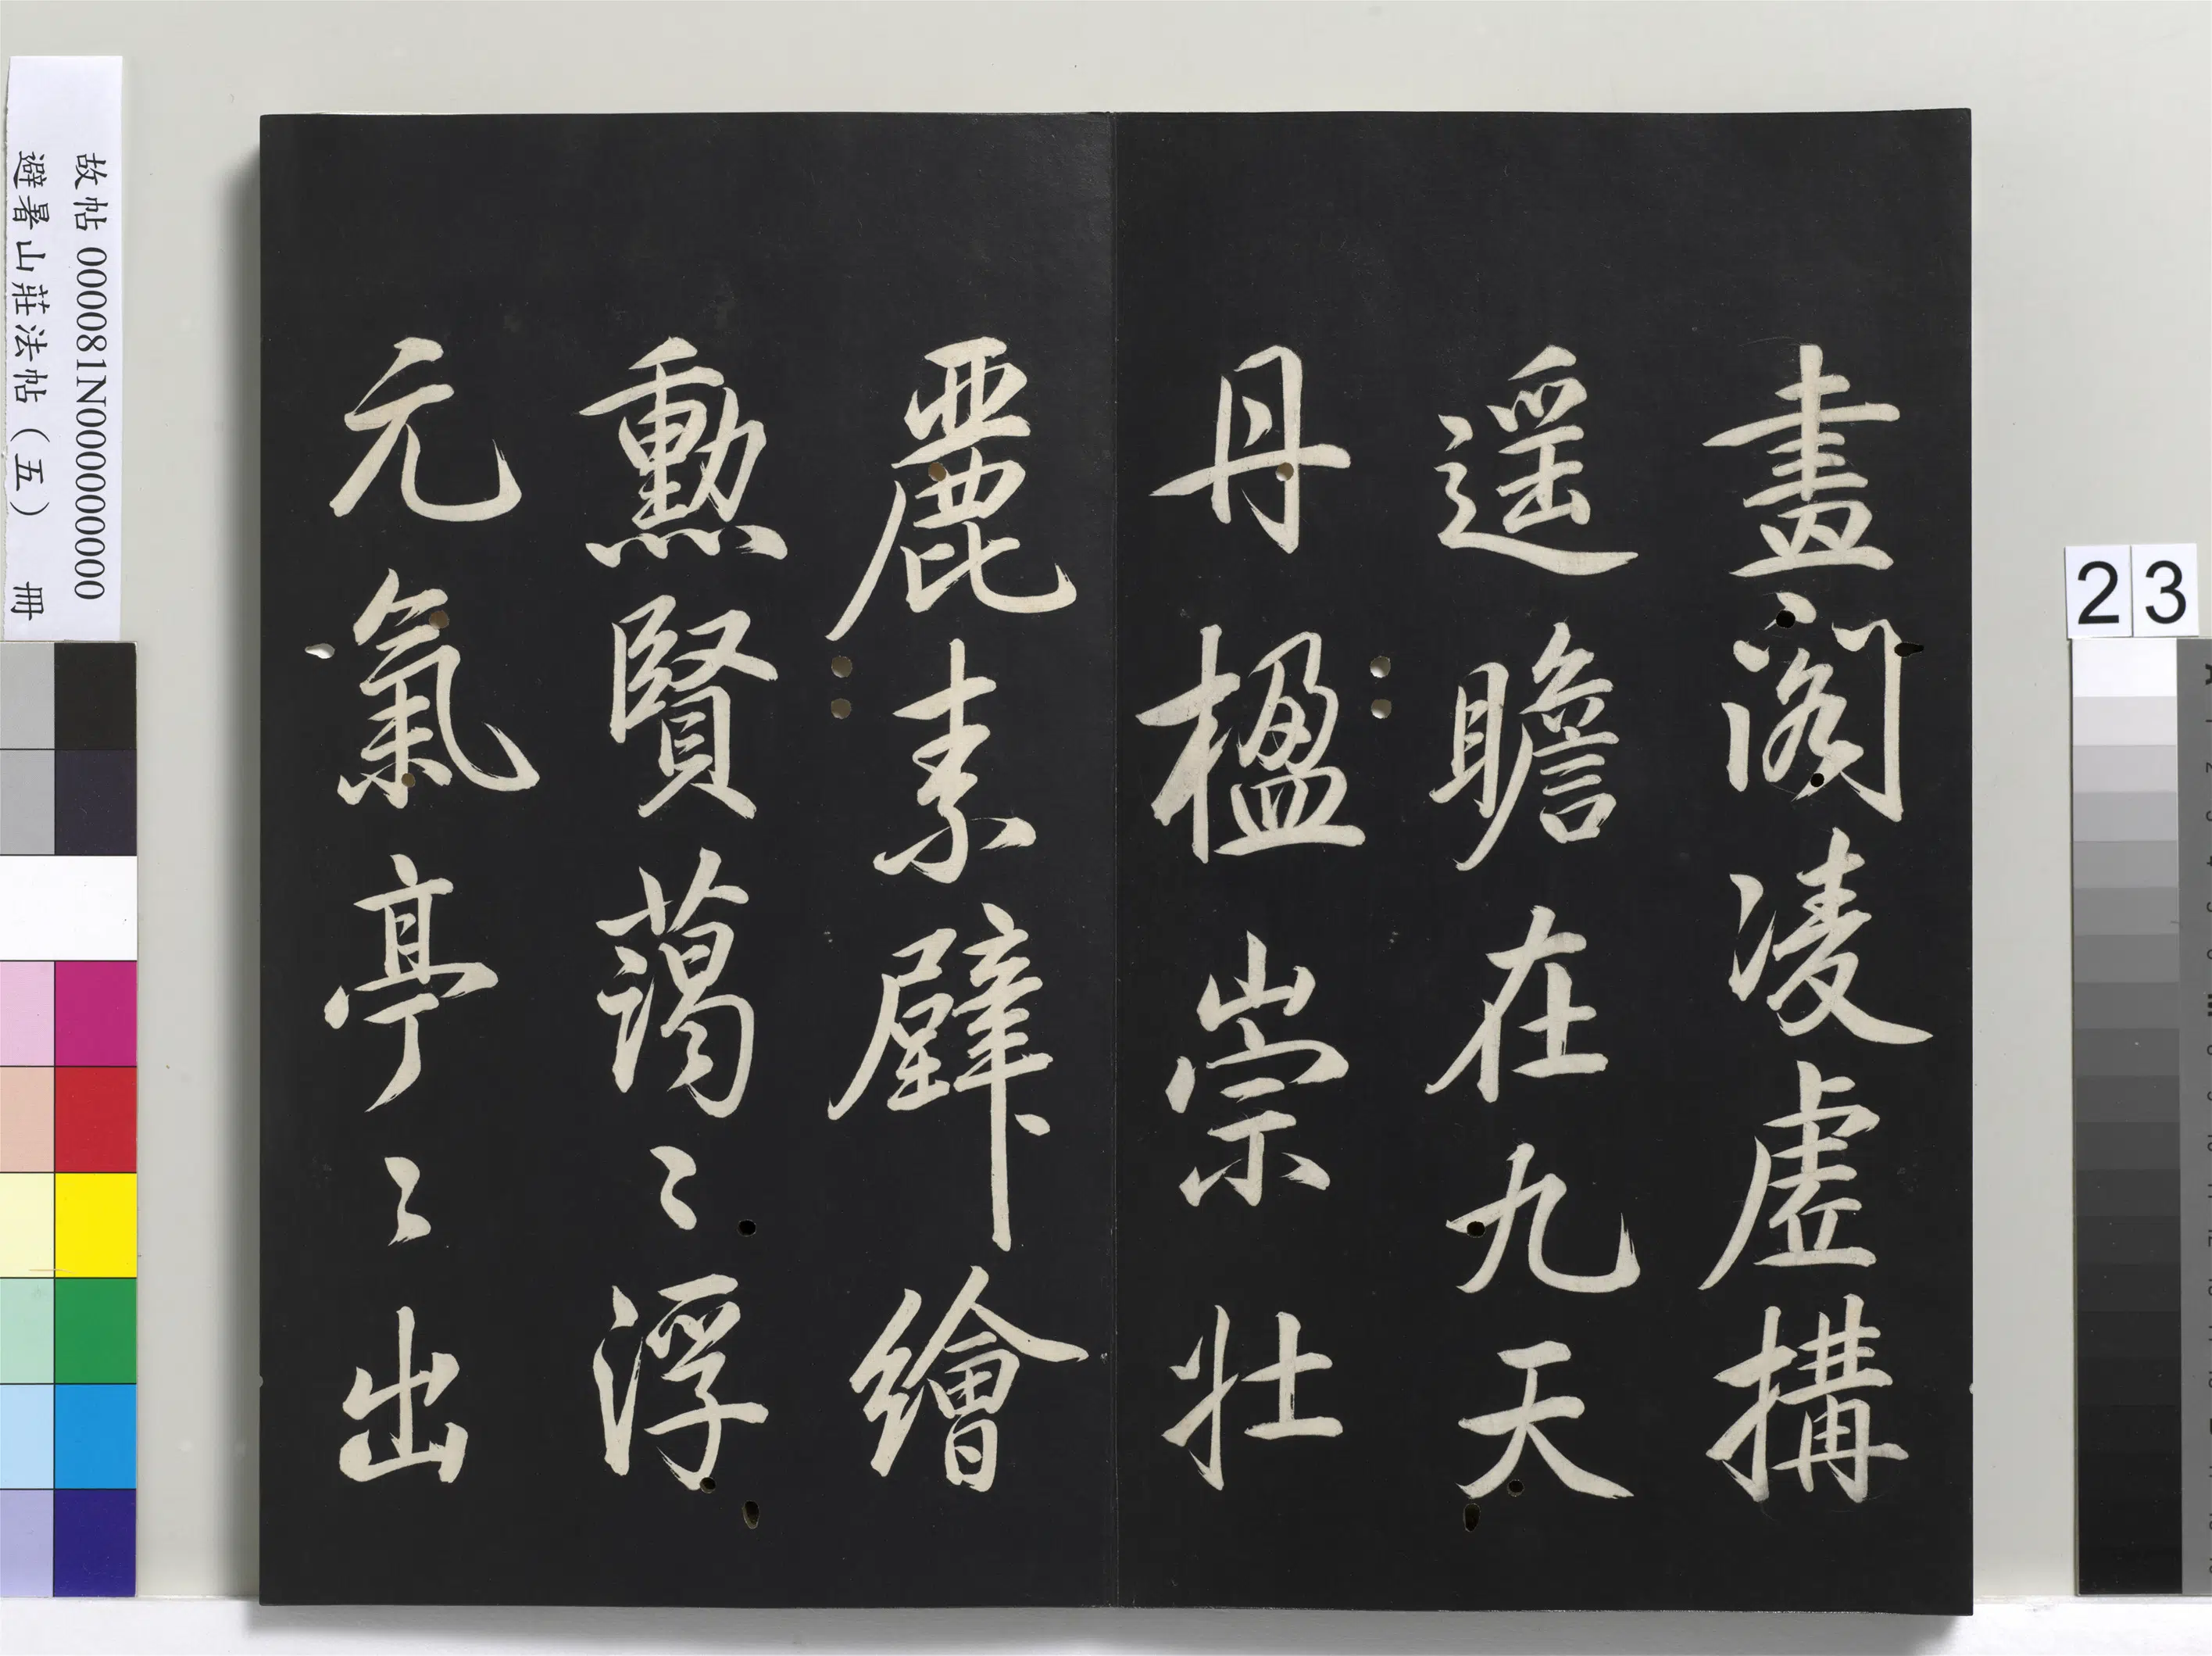 畫閣凌虛構
遥瞻在九天
丹楹崇壯
麗素壁繪
勲賢藹〻浮
元氣亭〻出
故帖 000081N000000000
避暑山莊法帖（五） 冊
23